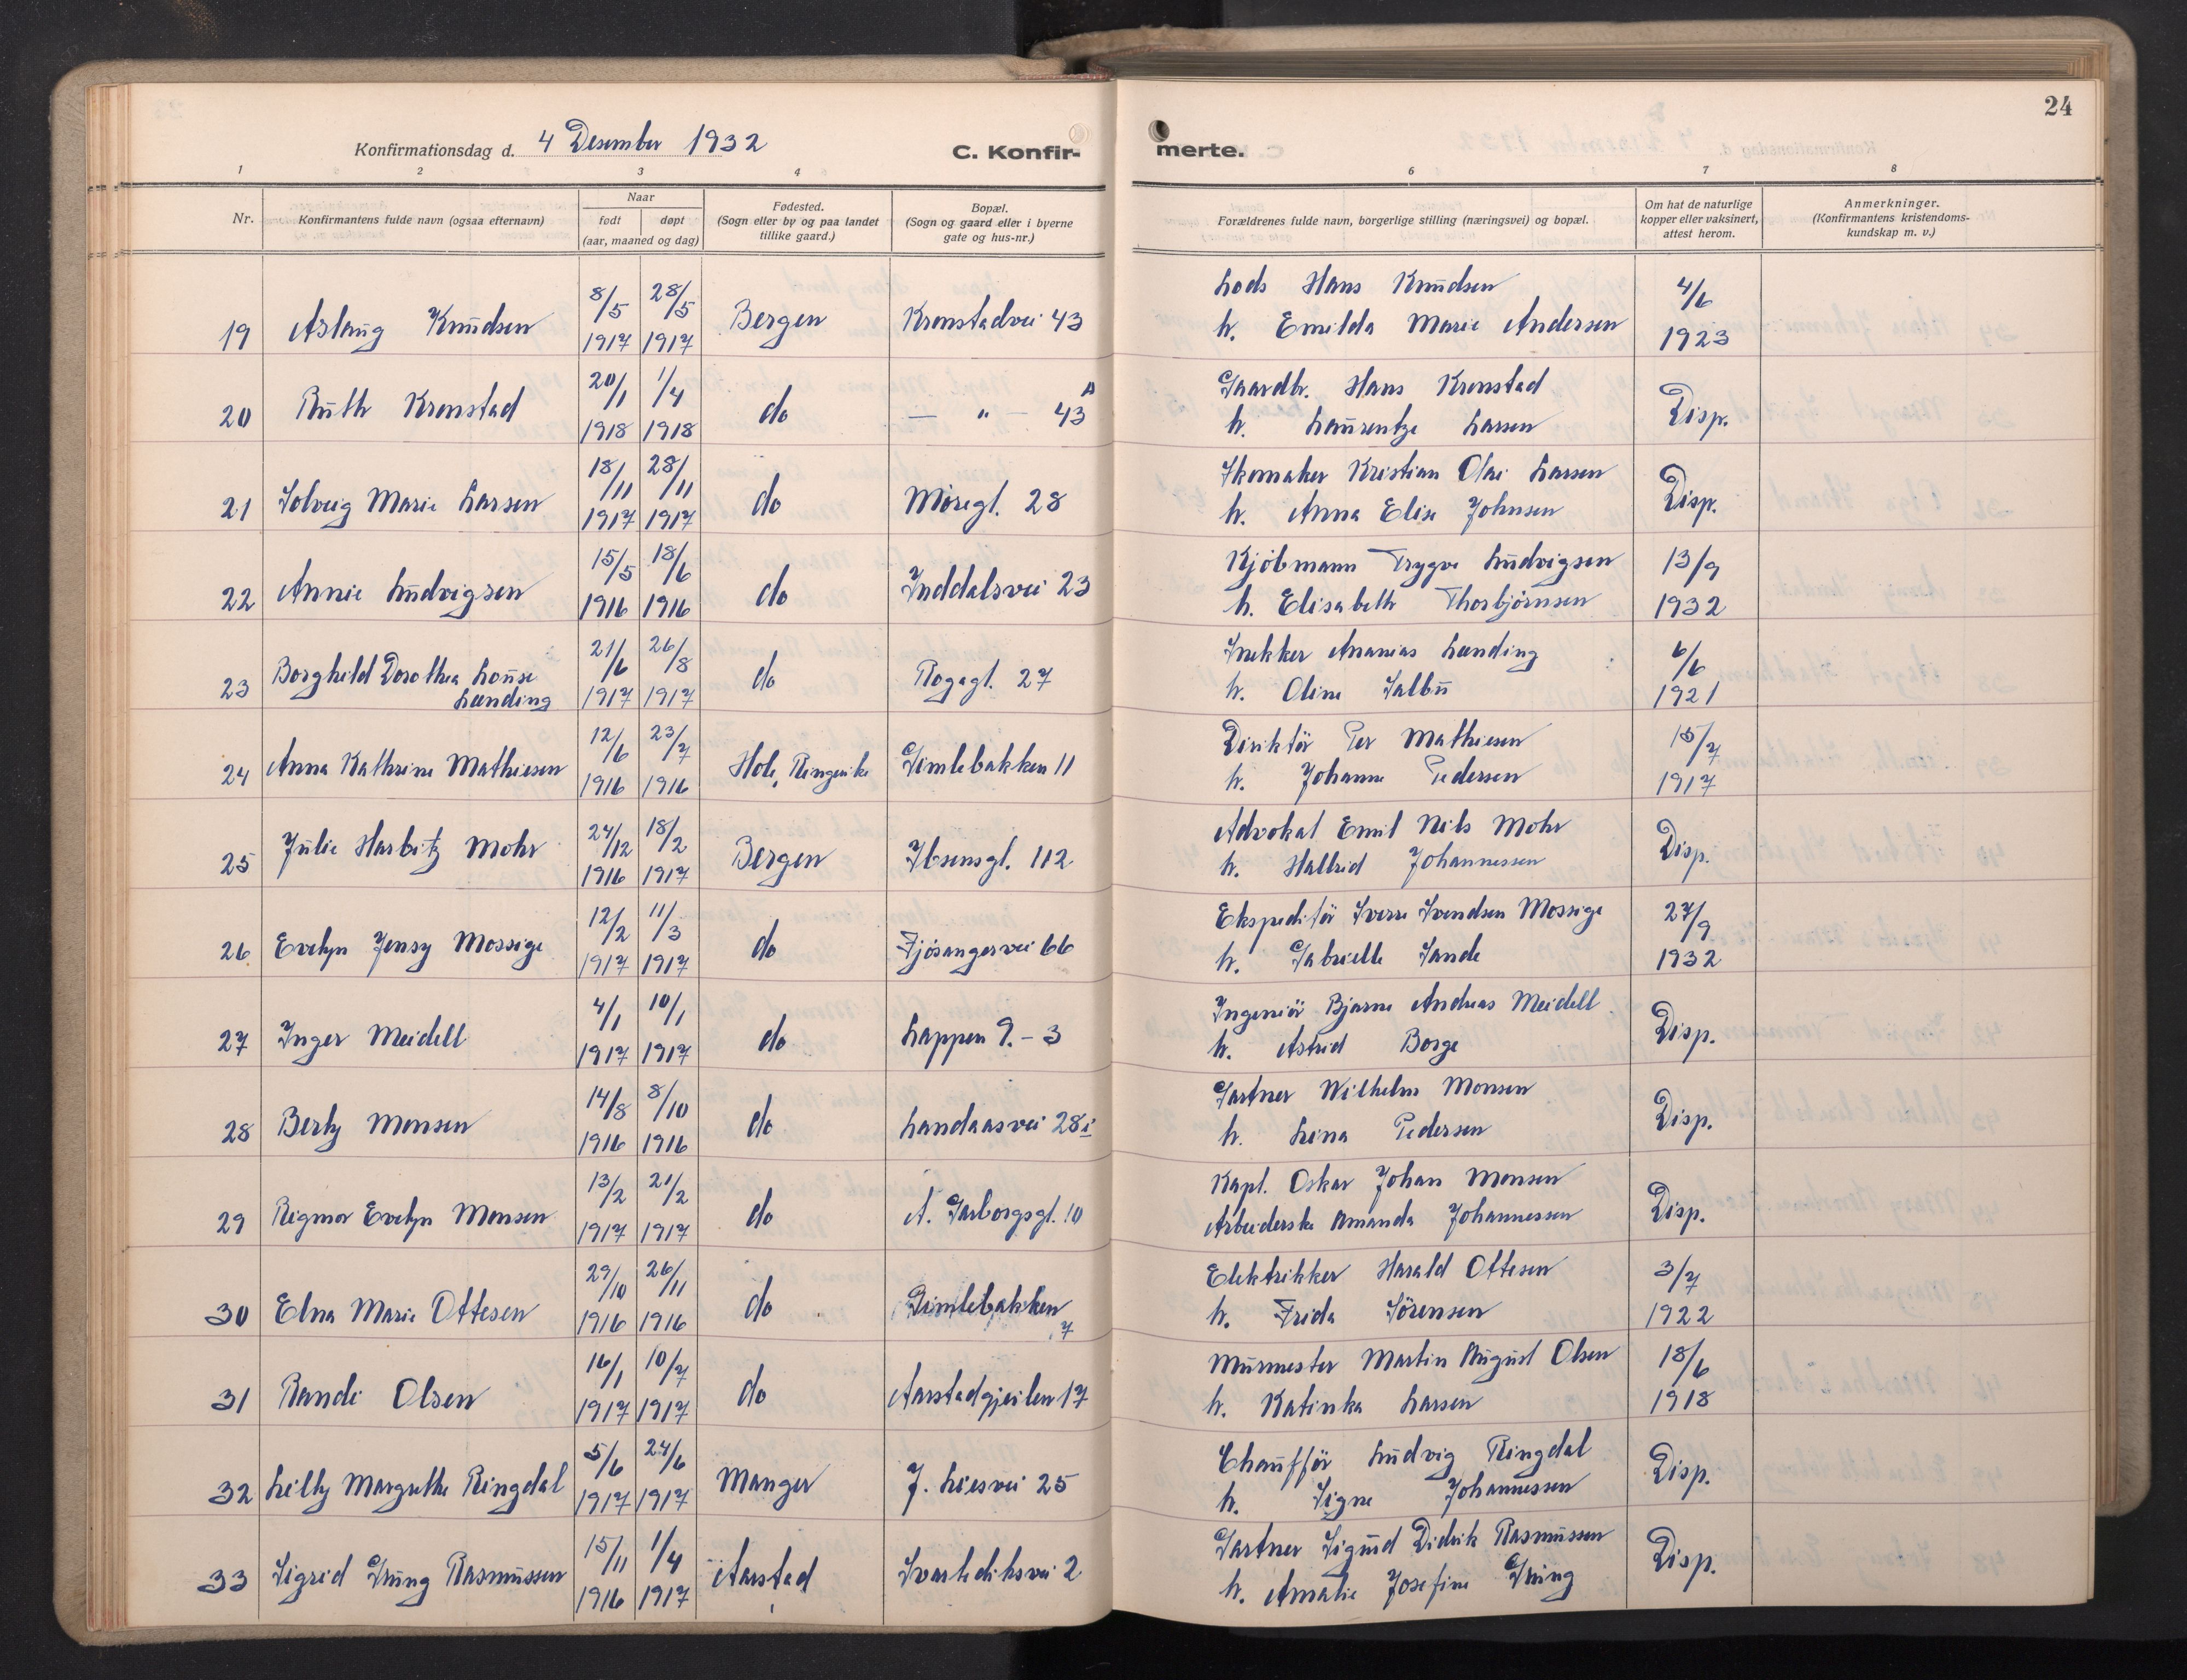 24
Konfirmationsdag d. 4 Desember 1932
C. Konfir-
merte.
1 2 3 4 6 7 8
Nr.
Konfirmantens fulde navn (ogsaa efternavn)
Naar
født døpt
(aar, maaned og dag)
Fødested.
(Sogn eller by og paa landet
tillike gaard.)
Bopæl.
(Sogn og gaard eller i byerne
gate og hus-nr.)
Forældrenes fulde navn, borgerlige stilling (næringsvei) og bopæl.
Om hat de naturlige
kopper eller vaksinert,
attest herom.
Anmerkninger.
(Konfirmantens kristendoms-
kundskap m. v.)
19 Aslaug Knudsen 8/5 1917 28/5 1917 Bergen Kronstadvei 43
Lods Hans Knudsen
h. Emilda Marie Andersen
4/6
1923
20 Ruth Kronstad 20/1 1918 1/4 1918 do — " — 43 A
Gaardbr. Hans Kronstad
h. Laurentze Larsen
Disp.
21 Solveig Marie Larsen 18/11 1917 28/11 1917 do Møregt. 28
Skomaker Kristian Olai Larsen
h. Anna Elise Johnsen
Disp.
22 Annie Ludvigsen 15/5 1916 18/6 1916 do Inddalsvei 23
Kjöbmann Trygve Ludvigsen
h. Elisabeth Thorbjørnsen
13/9
1932
23 Borghild Dorothea Louise
Lænding 21/6 1917 26/8 1917 do Rogagt. 27
Snekker Ananias Lænding
h. Oline Salbu
6/6
1921
24 Anna Kathrine Mathiesen 12/6 1916 23/7 1916 Hole, Ringerike Gimlebakken 11
Direktör Per Mathiesen
h. Johanne Pedersen
15/7
1917
25 Julie Harbitz Mohr 24/12 1916 18/2 1917 Bergen Ibsensgt. 112
Advokat Emil Nils Mohr
h. Hallrid Johannessen
Disp.
26 Evelyn Jensy Mossige 12/2 1917 11/3 1917 do Fjösangervei 66
Ekspeditör Sverre Svendsen Mossige
h. Gabrielle Sande
27/9
1932
27 Inger Meidell 4/1 1917 10/1 1917 do Lappen 9. - 3
Ingeniör Bjarne Andreas Meidell
h. Astrid Borge
Disp.
28 Berty Monsen 14/8 1916 8/10 1916 do Landaasvei 28 i
Gartner Wilhelm Monsen
h. Lina Pedersen
Disp.
29 Rigmor Evelyn Monsen 13/2 1917 21/2 1917 do A. Garborgsgt. 10
Kapt. Oskar Johan Monsen
Arbeiderske Amanda Johannessen
Disp.
30 Elna Marie Ottesen 29/10 1916 26/11 1916 do Gimlebakken
7
Elektrikker Harald Ottesen
h. Frida Sörensen
3/7
1922
31 Randi Olsen 16/1 1917 10/7 1917 do Aarstadgjeilen 17
Murmester Martin August Olsen
h. Katinka Larsen
18/6
1918
32 Lilly Margrethe Ringdal 5/6 1917 24/6 1917 Manger J. Liesvei 25
Chauffør Ludvig Ringdal
h. Signe Johannessen
Disp.
33 Sigrid Grung Rasmussen 15/11 1916 1/4 1917 Aarstad Svartediksvei 2
Gartner Sigurd Didrik Rasmussen
h. Amalie Josefine Grung
Disp.